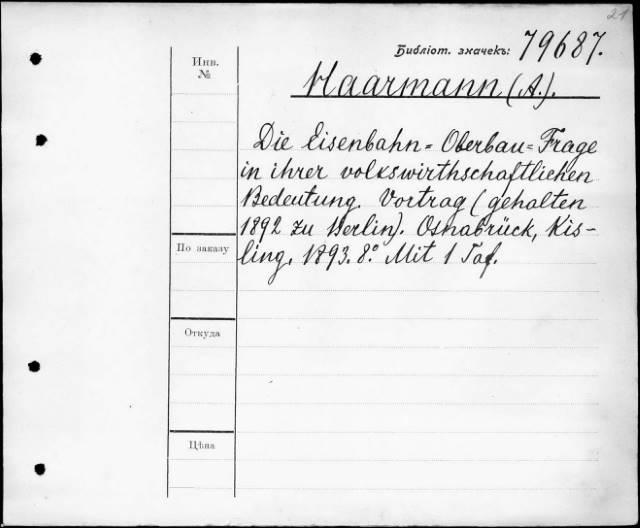 21
Библіот. значекъ: 79687.
Инв.
№
Haarmann (A.).
Die Eisenbahn=Oberbau=Frage
in ihrer volkswirthschaftlichen
Bedeutung. Vortrag (gehalten
1892 zu Berlin). Osnabrück, Kis-
ling, 1893. 8.º Mit 1 Taf.
По заказу
Откуда
Цѣна